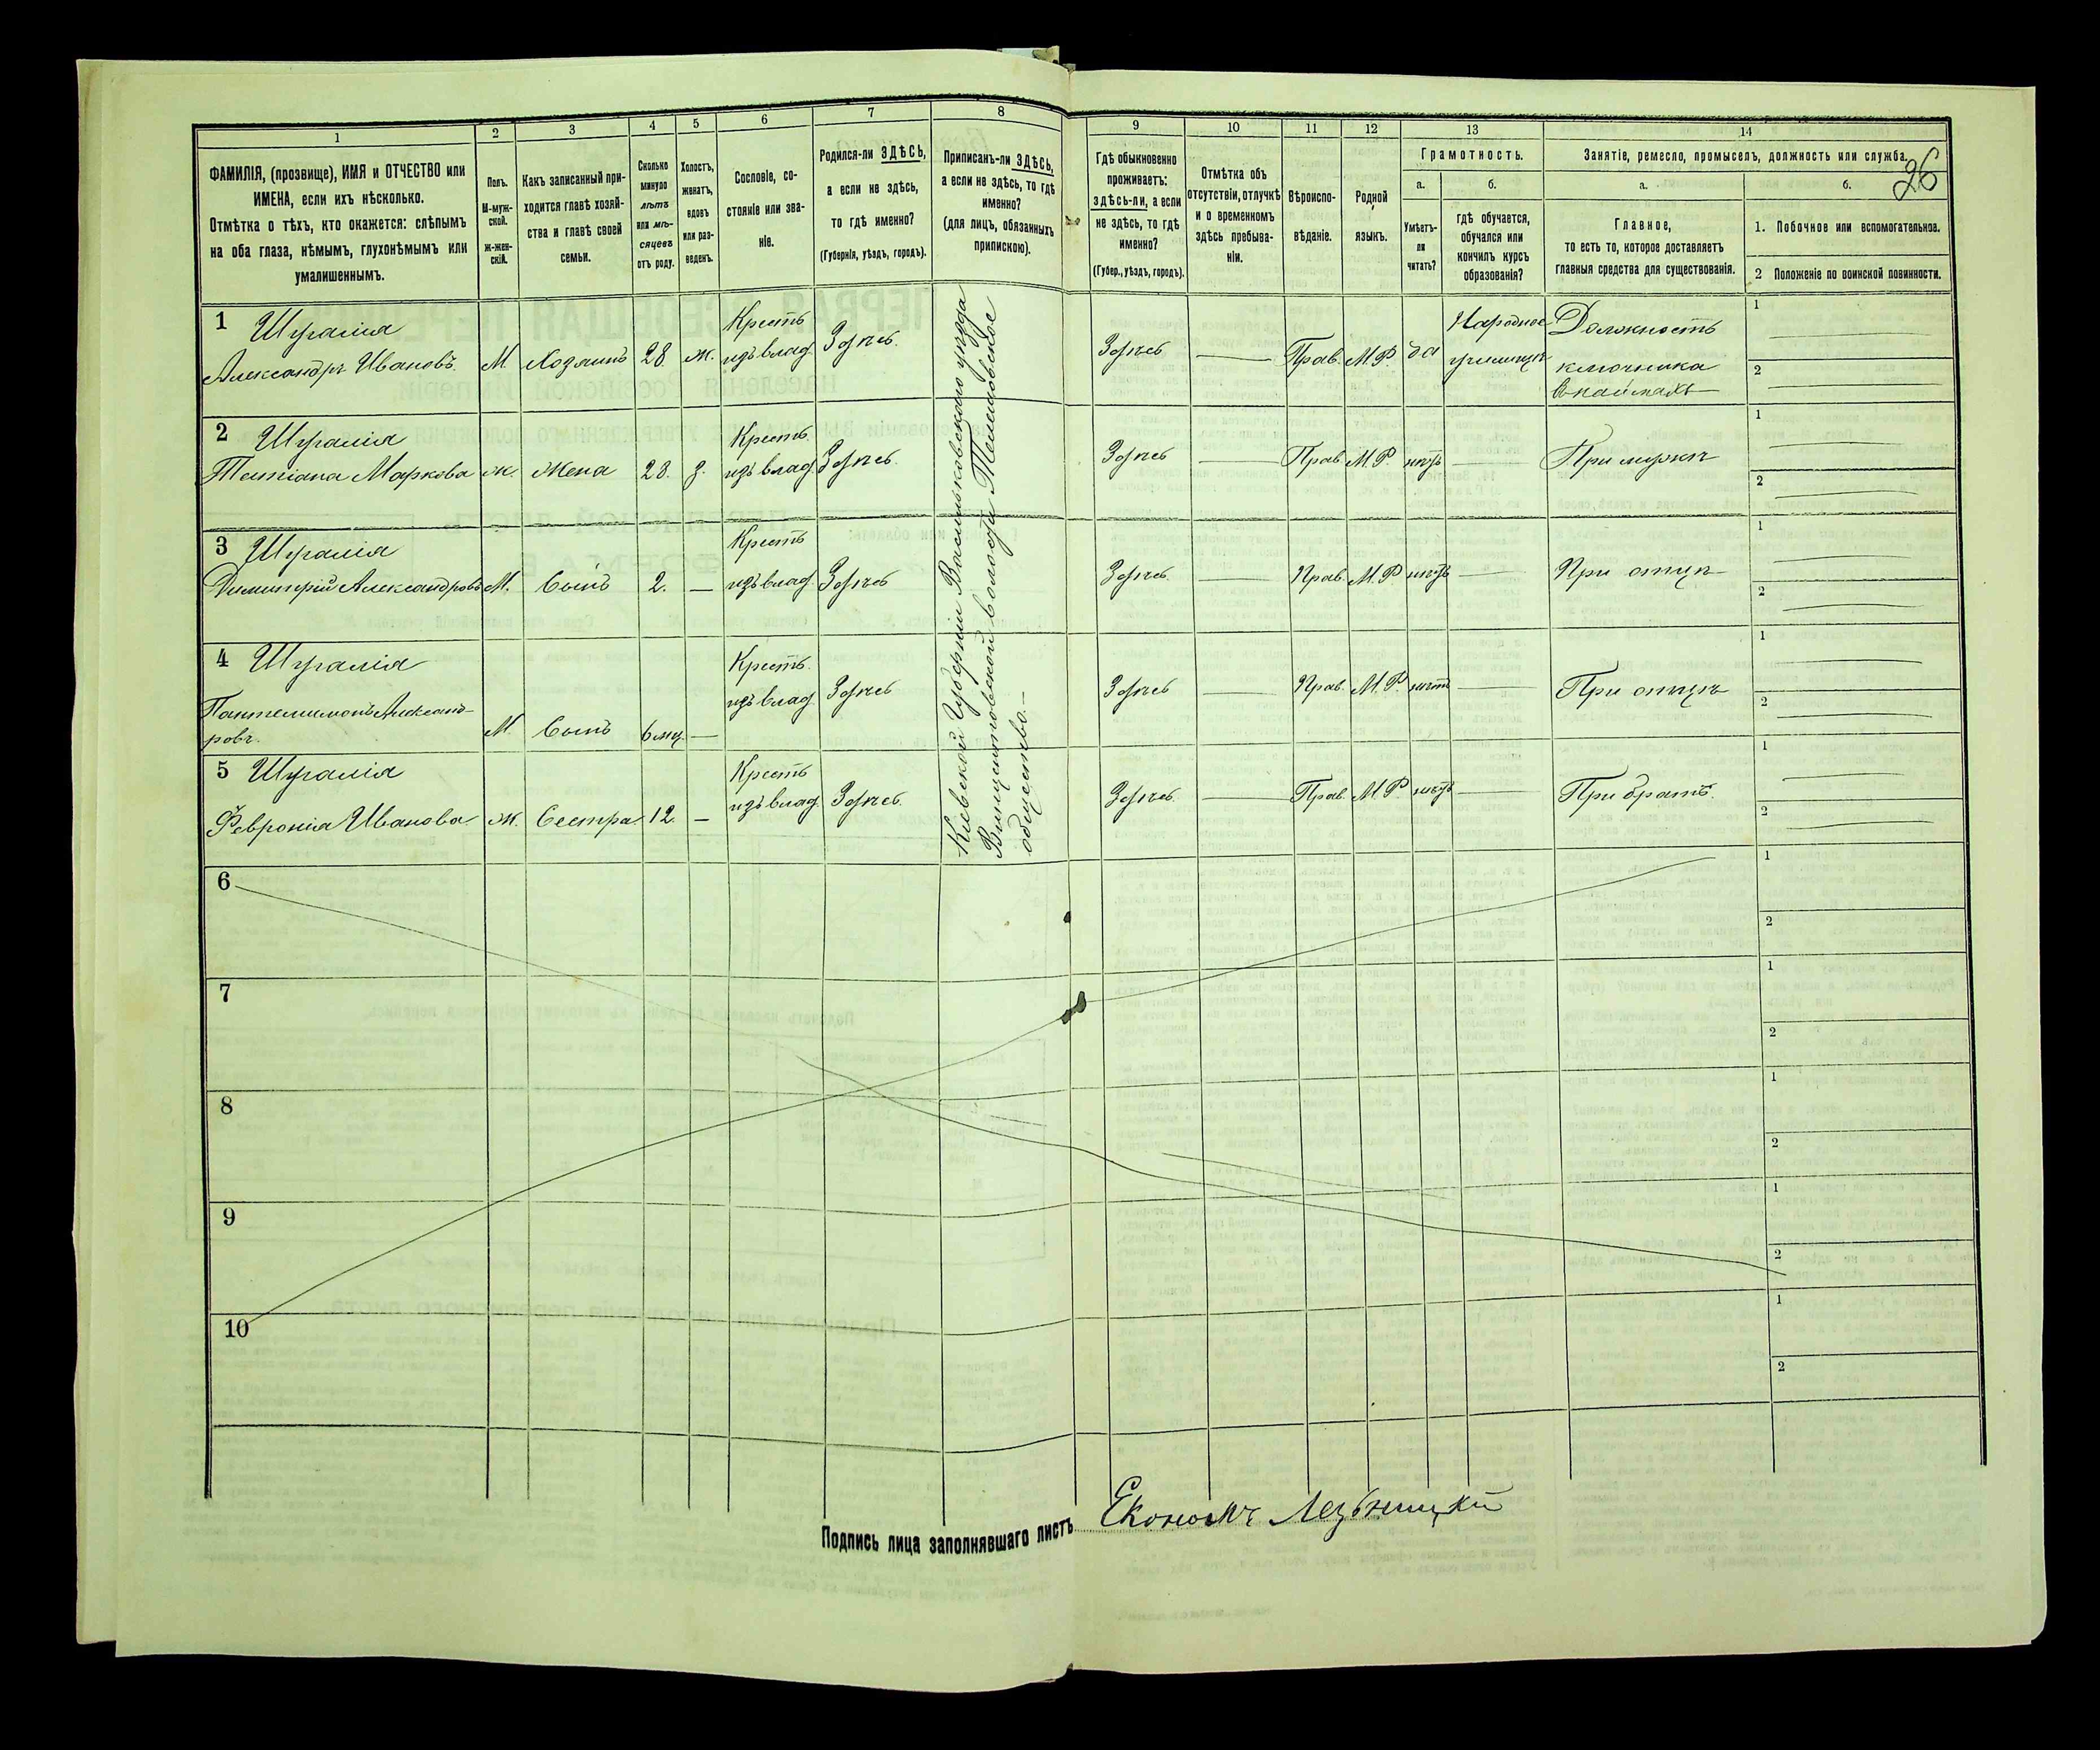 26
1 2 3 4 5 6 7 8 9 10 11 12 13 14
ФАМИЛІЯ, (прозвище), ИМЯ и ОТЧЕСТВО или
ИМЕНА, если ихъ нѣсколько.
Отмѣтка о тѣхъ, кто окажется: слѣпымъ
на оба глаза, нѣмымъ, глухонѣмымъ или
умалишеннымъ.
Полъ.
М-муж-
ской.
Ж-жен-
скій.
Какъ записанный при-
ходится главѣ хозяй-
ства и главѣ своей
семьи.
Сколько
минуло
лѣтъ
или мѣ-
сяцевъ
отъ роду.
Холостъ,
женатъ,
вдовъ
или раз-
веденъ.
Сословіе, со-
стояніе или зва-
ніе.
Родился-ли ЗДѢСЬ,
а если не здѣсь,
то гдѣ именно?
(Губернія, уѣздъ, городъ).
Приписанъ-ли ЗДѢСЬ,
а если не здѣсь, то гдѣ
именно?
(для лицъ, обязанныхъ
припискою).
Гдѣ обыкновенно
проживаетъ:
ЗДѢСЬ-ЛИ, а если
не здѣсь, то гдѣ
именно?
(Губер., уѣздъ, городъ).
Отмѣтка объ
отсутствіи, отлучкѣ
и о временномъ
здѣсь пребыва-
ніи.
Вѣроиспо-
вѣданіе.
Родной
языкъ.
Грамотность.
а.
Умѣетъ-
ли
читать?
б.
гдѣ обучается,
обучался или
кончилъ курсъ
образованія?
Занятіе, ремесло, промыселъ, должность или служба.
а.
Главное,
то есть то, которое доставляетъ
главныя средства для существованія.
б.
1. Побочное или вспомогательное.
2 Положеніе по воинской повинности.
1 Шугалія Крестъ Народное Должность 1
Александръ Ивановъ. М Хозяинъ 28. ж. изъ влад. Здѣсь. Здѣсь Прав. М.Р. да училище ключника 2
в наймахъ
2 Шугалія Крестъ. 1
Татіана Маркова ж. Жена 28. з. изъ влад. Здѣсь. Здѣсь Прав М.Р. нѣтъ При мужѣ 2
3 Шугалія Крестъ 1
Димитрій Александровъ М. Сынъ 2. — изъ влад. Здѣсь Здѣсь. Прав. М.Р нѣтъ При отцѣ 2
4 Шугалія Крестъ. 1
Пантелимонъ Александ- изъ влад. Здѣсь Здѣсь Прав. М.Р. нѣтъ При отцѣ 2
ровъ. М. Сынъ 6 мц. —
5 Шугалія Крестъ 1
Февронія Иванова. ж. Сестра 12. — изъ влад. Здѣсь. Здѣсь. Прав. М.Р. нѣтъ При братѣ. 2
Кіевской Губерніи Васильковскаго уѣзда
Винцентовской волости
общество.—
6 1
2
7 1
2
8 1
2
9 1
2
10 1
2
Подпись лица заполнявшаго листъ Економъ